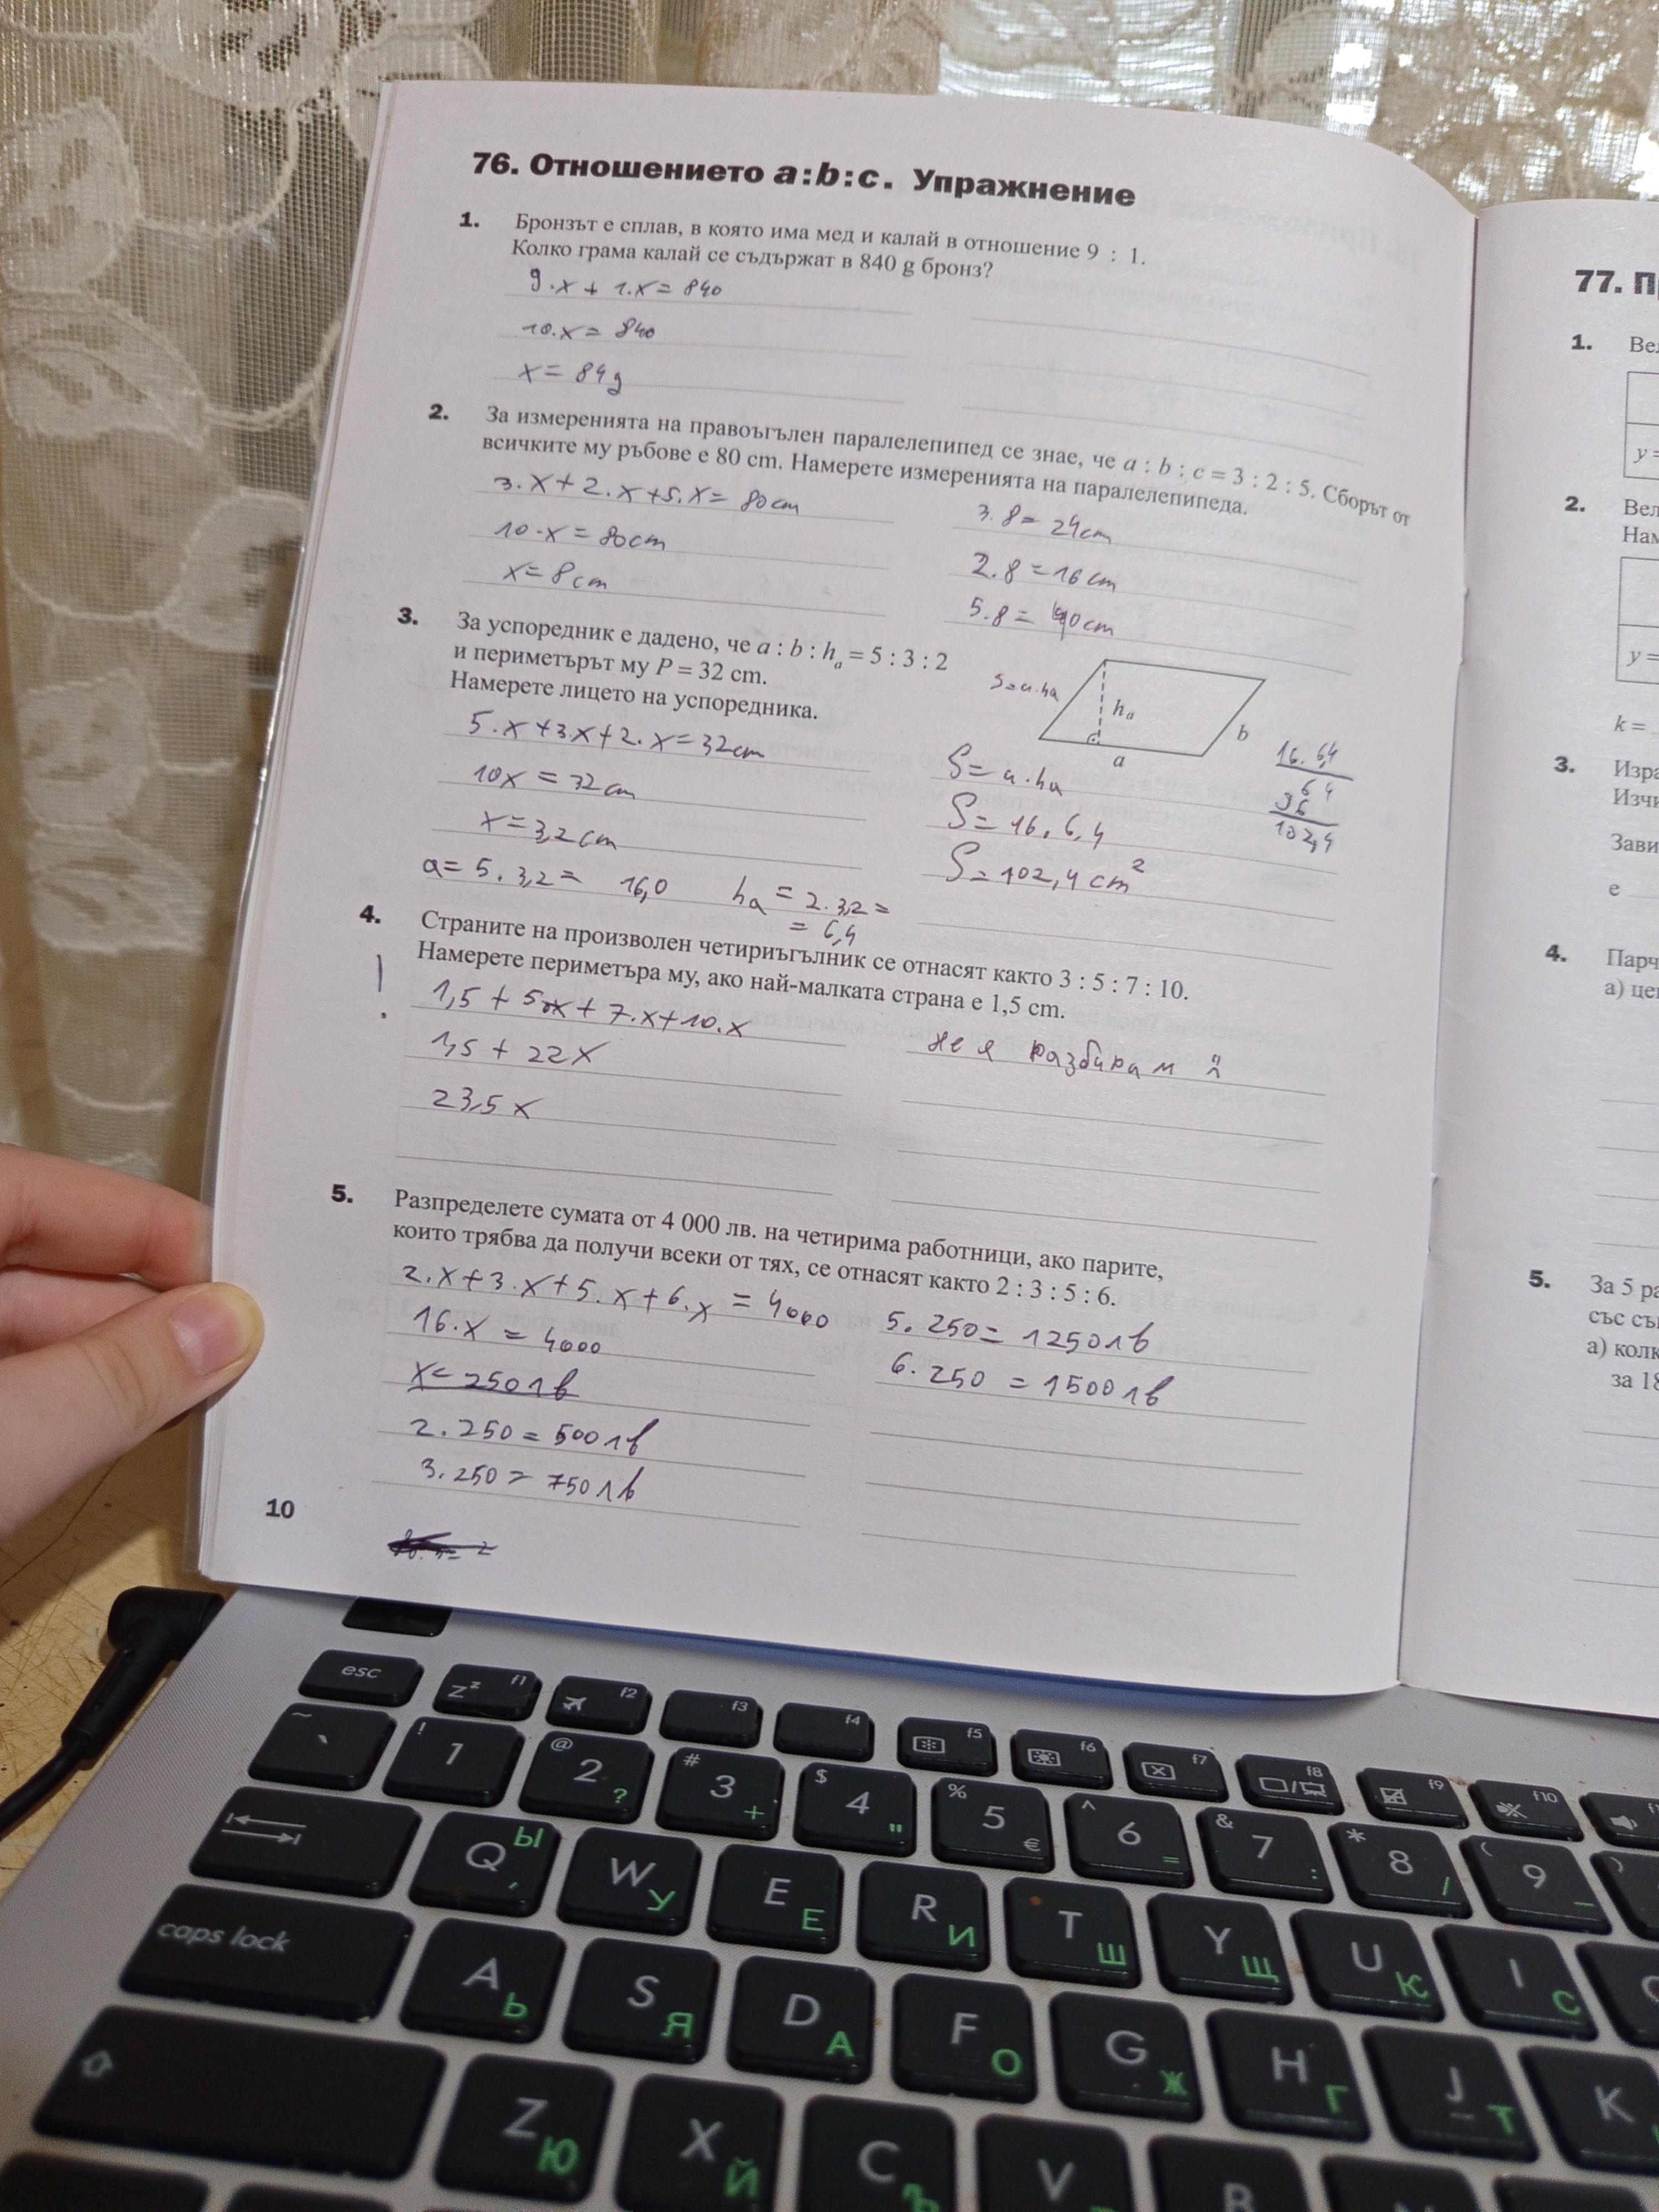 76. Отношението a:b:c. Упражнение
1. Бронзът е сплав, в която има мед и калай в отношение 9 : 1.
Колко грама калай се съдържат в 840 g бронз?
9.x + 1.x = 840
10.x = 840
x = 84g
2. За измеренията на правоъгълен паралелепипед се знае, че a : b : c = 3 : 2 : 5. Сборът от
всичките му ръбове е 80 cm. Намерете измеренията на паралелепипеда.
3.x + 2.x + 5.x = 80cm
10.x = 80cm
x = 8cm
3.8 = 24cm
2.8 = 16cm
5.8 = 40cm
3. За успоредник е дадено, че a : b : hₐ = 5 : 3 : 2
и периметърът му P = 32 cm.
Намерете лицето на успоредника.
S=a.ha
hₐ
b
a
5.x + 3.x + 2.x = 32cm
10x = 32cm
x = 3,2cm
a = 5.3,2 = 16,0
ha = 2.3,2 =
= 6,4
S = a.ha
S = 16.6,4
S = 102,4 cm²
16.6,4
64
96
102,4
4. Страните на произволен четириъгълник се отнасят както 3 : 5 : 7 : 10.
Намерете периметъра му, ако най-малката страна е 1,5 cm.
!
1,5 + 5x + 7.x + 10.x
1,5 + 22x
23,5x
не я разбирам ?
5. Разпределете сумата от 4 000 лв. на четирима работници, ако парите,
които трябва да получи всеки от тях, се отнасят както 2 : 3 : 5 : 6.
2.x + 3.x + 5.x + 6.x = 4000
16.x = 4000
x = 250лв
2.250 = 500лв
3.250 = 750лв
5.250 = 1250лв
6.250 = 1500лв
10
77. П
1. Вел
y =
2. Вел
Нам
y =
k =
3. Изра
Изчи
Зави
е
4. Парч
а) цен
5. За 5 ра
със съ
а) колк
за 18
esc
zᶻ f1
f2
f3
f4
f5
f6
f7
f8
f9
f10
~ `
! 1
@ 2 ?
# 3 +
$ 4 "
% 5 €
^ 6 =
& 7 :
* 8 /
( 9 _
)
Q Ы ,
W У
E Е
R И
T Ш
Y Щ
U К
I С
caps lock
A Ь
S Я
D А
F О
G Ж
H Г
J Т
K
Z Ю
X Й
C Ъ
V
B